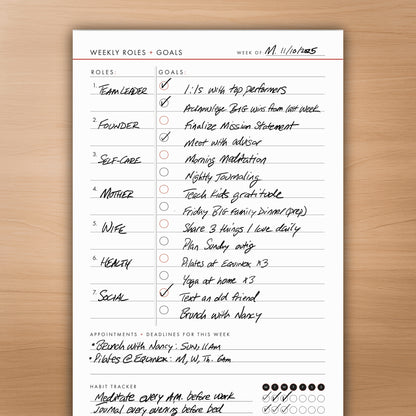 WEEKLY ROLES + GOALS WEEK OF M. 11/10/2025
ROLES: GOALS:
1. TEAM LEADER 1:1s with top performers
Acknowledge BIG wins from last week
2. FOUNDER Finalize Mission Statement
Meet with advisor
3. SELF-CARE Morning Meditation
Nightly Journaling
4. MOTHER Teach kids gratitude
Friday BIG Family Dinner (prep)
5. WIFE Share 3 things I love daily
Plan Sunday outing
6. HEALTH Pilates at Equinox x3
Yoga at home x3
7. SOCIAL Text an old friend
Brunch with Nancy
APPOINTMENTS + DEADLINES FOR THIS WEEK
• Brunch with Nancy: Sun, 11am
• Pilates @ Equinox: M, W, Th. 6am
HABIT TRACKER
Meditate every A.M. before work
Journal every evening before bed